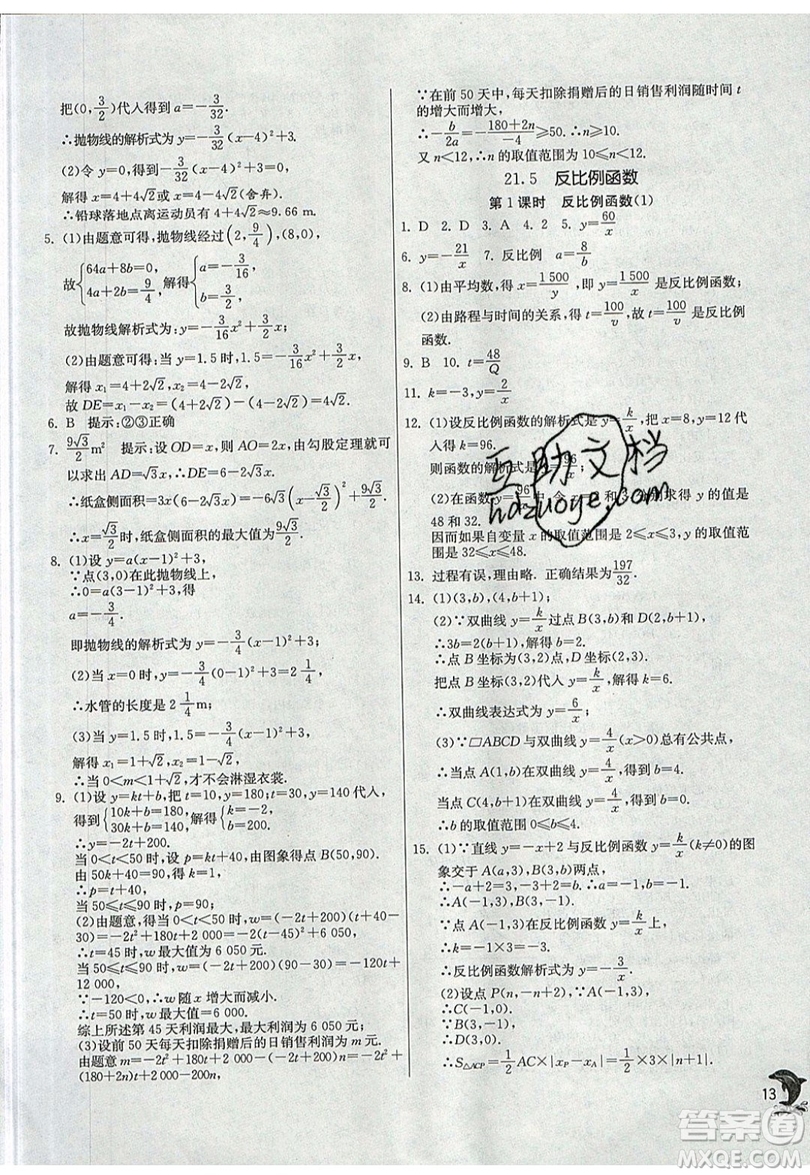 把(0,3/2)代人得到a=-3/32.
∴抛物线的解析式为y=-3/32(x-4)²+3.
(2)令y=0,得到-3/32(x-4)²+3=0,
解得x=4+4√2或4-4√2(舍弃).
∴铅球落地点离运动员有4+4√2≈9.66 m.
5. (1)由题意可得,抛物线经过(2,9/4),(8,0),
故{64a+8b=0, 4a+2b=9/4, 解得{a=-3/16, b=3/2.
故抛物线解析式为:y=-3/16x²+3/2x;
(2)由题意可得:当y=1.5时,1.5=-3/16x²+3/2x,
解得x₁=4+2√2,x₂=4-2√2,
故DE=x₁-x₂=4+2√2-(4-2√2)=4√2.
6. B 提示:②③正确
7. 9√3/2 m² 提示:设OD=x,则AO=2x,由勾股定理就可
以求出AD=√3x,∴DE=6-2√3x,
∴纸盒侧面积=3x(6-2√3x)=-6√3(x-√3/2)²+9√3/2,
∴x=√3/2时,纸盒侧面积的最大值为9√3/2.
8. (1)设y=a(x-1)²+3,
∵点(3,0)在此抛物线上,
∴0=a(3-1)²+3,得
a=-3/4.
即抛物线的解析式为y=-3/4(x-1)²+3;
(2)当x=0时,y=-3/4(0-1)²+3=2 1/4,
∴水管的长度是2 1/4 m;
(3)当y=1.5时,1.5=-3/4(x-1)²+3,
解得x₁=1-√2,x₂=1+√2,
∴当0<m<1+√2,才不会淋湿衣裳.
9. (1)设y=kt+b,把t=10,y=180;t=30,y=140代人,
得到{10k+b=180, 30k+b=140,解得{k=-2, b=200.
∴y=-2t+200.
当0<t≤50时,设p=mt+40,由图象得B(50,90).
由50k+40=90,得k=1,
∴p=t+40,
当50≤t≤90时,p=90;
(2)由题意,得当0<t≤50时,w=(-2t+200)(t+40-
30)=-2t²+180t+2000=-2(t-45)²+6 050,
∴t=45时,w最大值为6 050元.
当50≤t≤90时,w=(-2t+200)(90-30)=-120t+
12 000,
∵-120<0,∴w随x增大而减小,
∴t=50时,w最大值=6 000,
综上所述第45天利润最大,最大利润为6 050元;
(3)设前50天每天扣除捐赠后的日销售利润为m元.
由题意m=-2t²+180t+2 000-(-2t+200)n=-2t²+
(180+2n)t+2 000-200n,
∵在前50天中,每天扣除捐赠后的日销售利润随时间t
的增大而增大,
∴-b/2a=-(180+2n)/-4≥50. ∴n≥10.
又n<12,∴n的取值范围为10≤n<12.
21.5 反比例函数
第1课时 反比例函数(1)
1. D 2. D 3. A 4. 2 5. y=60/x
6. y=-21/x 7. 反比例 a=8/b
8. (1)由平均数,得x=1 500/y,即y=1 500/x是反比例函数;
(2)由路程与时间的关系,得t=100/v,故t=100/v是反比例
函数.
9. B 10. t=48/Q
11. k=-3,y=2/x
12. (1)设反比例函数的解析式是y=k/x,把x=8,y=12代
人得k=96.
则函数的解析式是y=96/x;
(2)在函数y=96/x中,令x=2和3,分别求得y的值是
48和32.
因而如果自变量x的取值范围是2≤x≤3,y的取值
范围是32≤x≤48.
13. 过程有误,理由略. 正确结果为197/32.
14. (1)(3,b),(4,b+1);
(2)∵双曲线y=k/x过点B(3,b)和D(2,b+1),
∴3b=2(b+1),解得b=2.
∴点B坐标为(3,2)点,D坐标(2,3).
把点B坐标(3,2)代人y=k/x,解得k=6.
∴双曲线表达式为y=6/x;
(3)∵□ABCD与双曲线y=4/x(x>0)总有公共点,
∴当点A(1,b)在双曲线y=4/x,得到b=4,
当点C(4,b+1)在双曲线y=4/x,得到b=0.
∴b的取值范围0≤b≤4.
15. (1)∵直线y=-x+2与反比例函数y=k/x(k≠0)的图
象交于A(a,3),B(3,b)两点,
∴-a+2=3,-3+2=b.
∴a=-1,b=-1.∴A(-1,3),B(3,-1).
∵点A(-1,3)在反比例函数y=k/x上,
∴k=-1×3=-3.
∴反比例函数解析式为y=-3/x.
(2)设点P(n,-n+2),∵A(-1,3),
∴C(-1,0).
∵B(3,-1),
∴D(3,0).
∴S△ACP=1/2AC×|xP-xA|=1/2×3×|n+1|.
13
互助文档
hdzuoye.com
答案圈
MXQE.COM